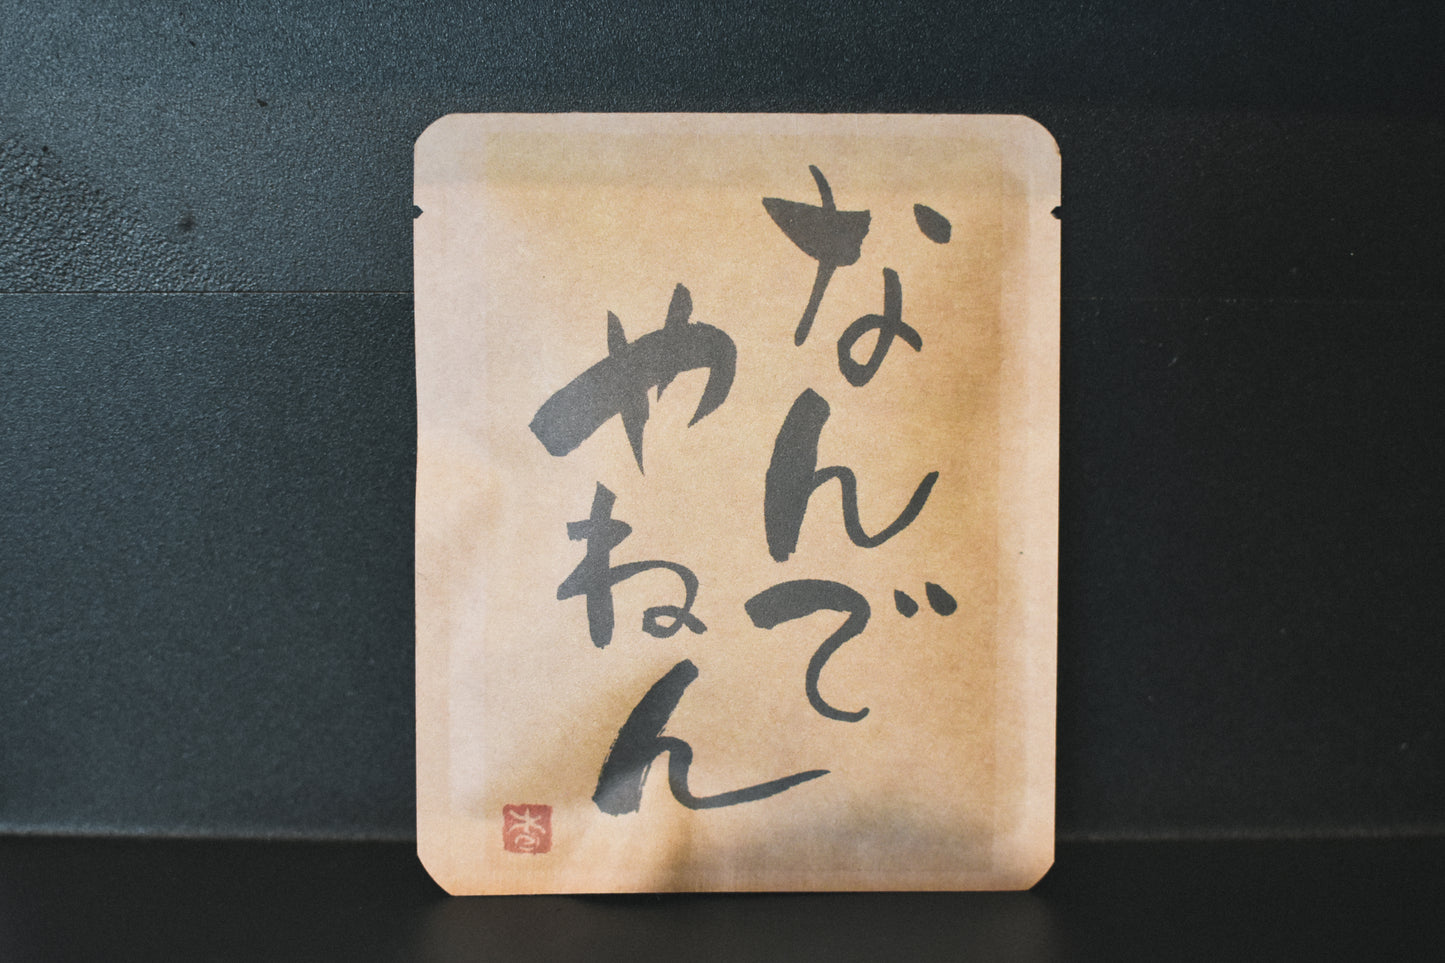 なんで
やねん